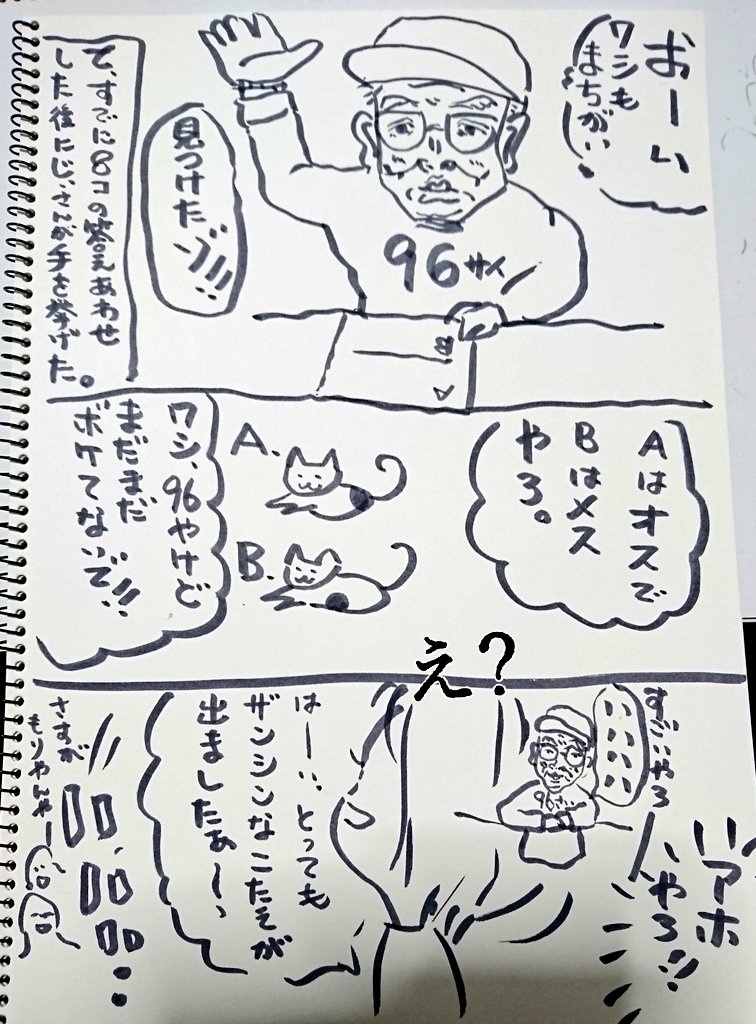 おーい
ワシも
まちがい
見つけたゾ!!!
96サイ
8
で、すでに8コの答えあわせ
した後にじいさんが手を挙げた。
Aはオスで
Bはメス
やろ。
A.
B.
ワシ、96やけど
まだまだ
ボケてないで!!
え?
すごいやろ
いいいい
アホ
やろ!!
96サイ
はーい、とっても
ザンシンなこたえが
出ましたぁ〜っ
さすが
もりやんやー